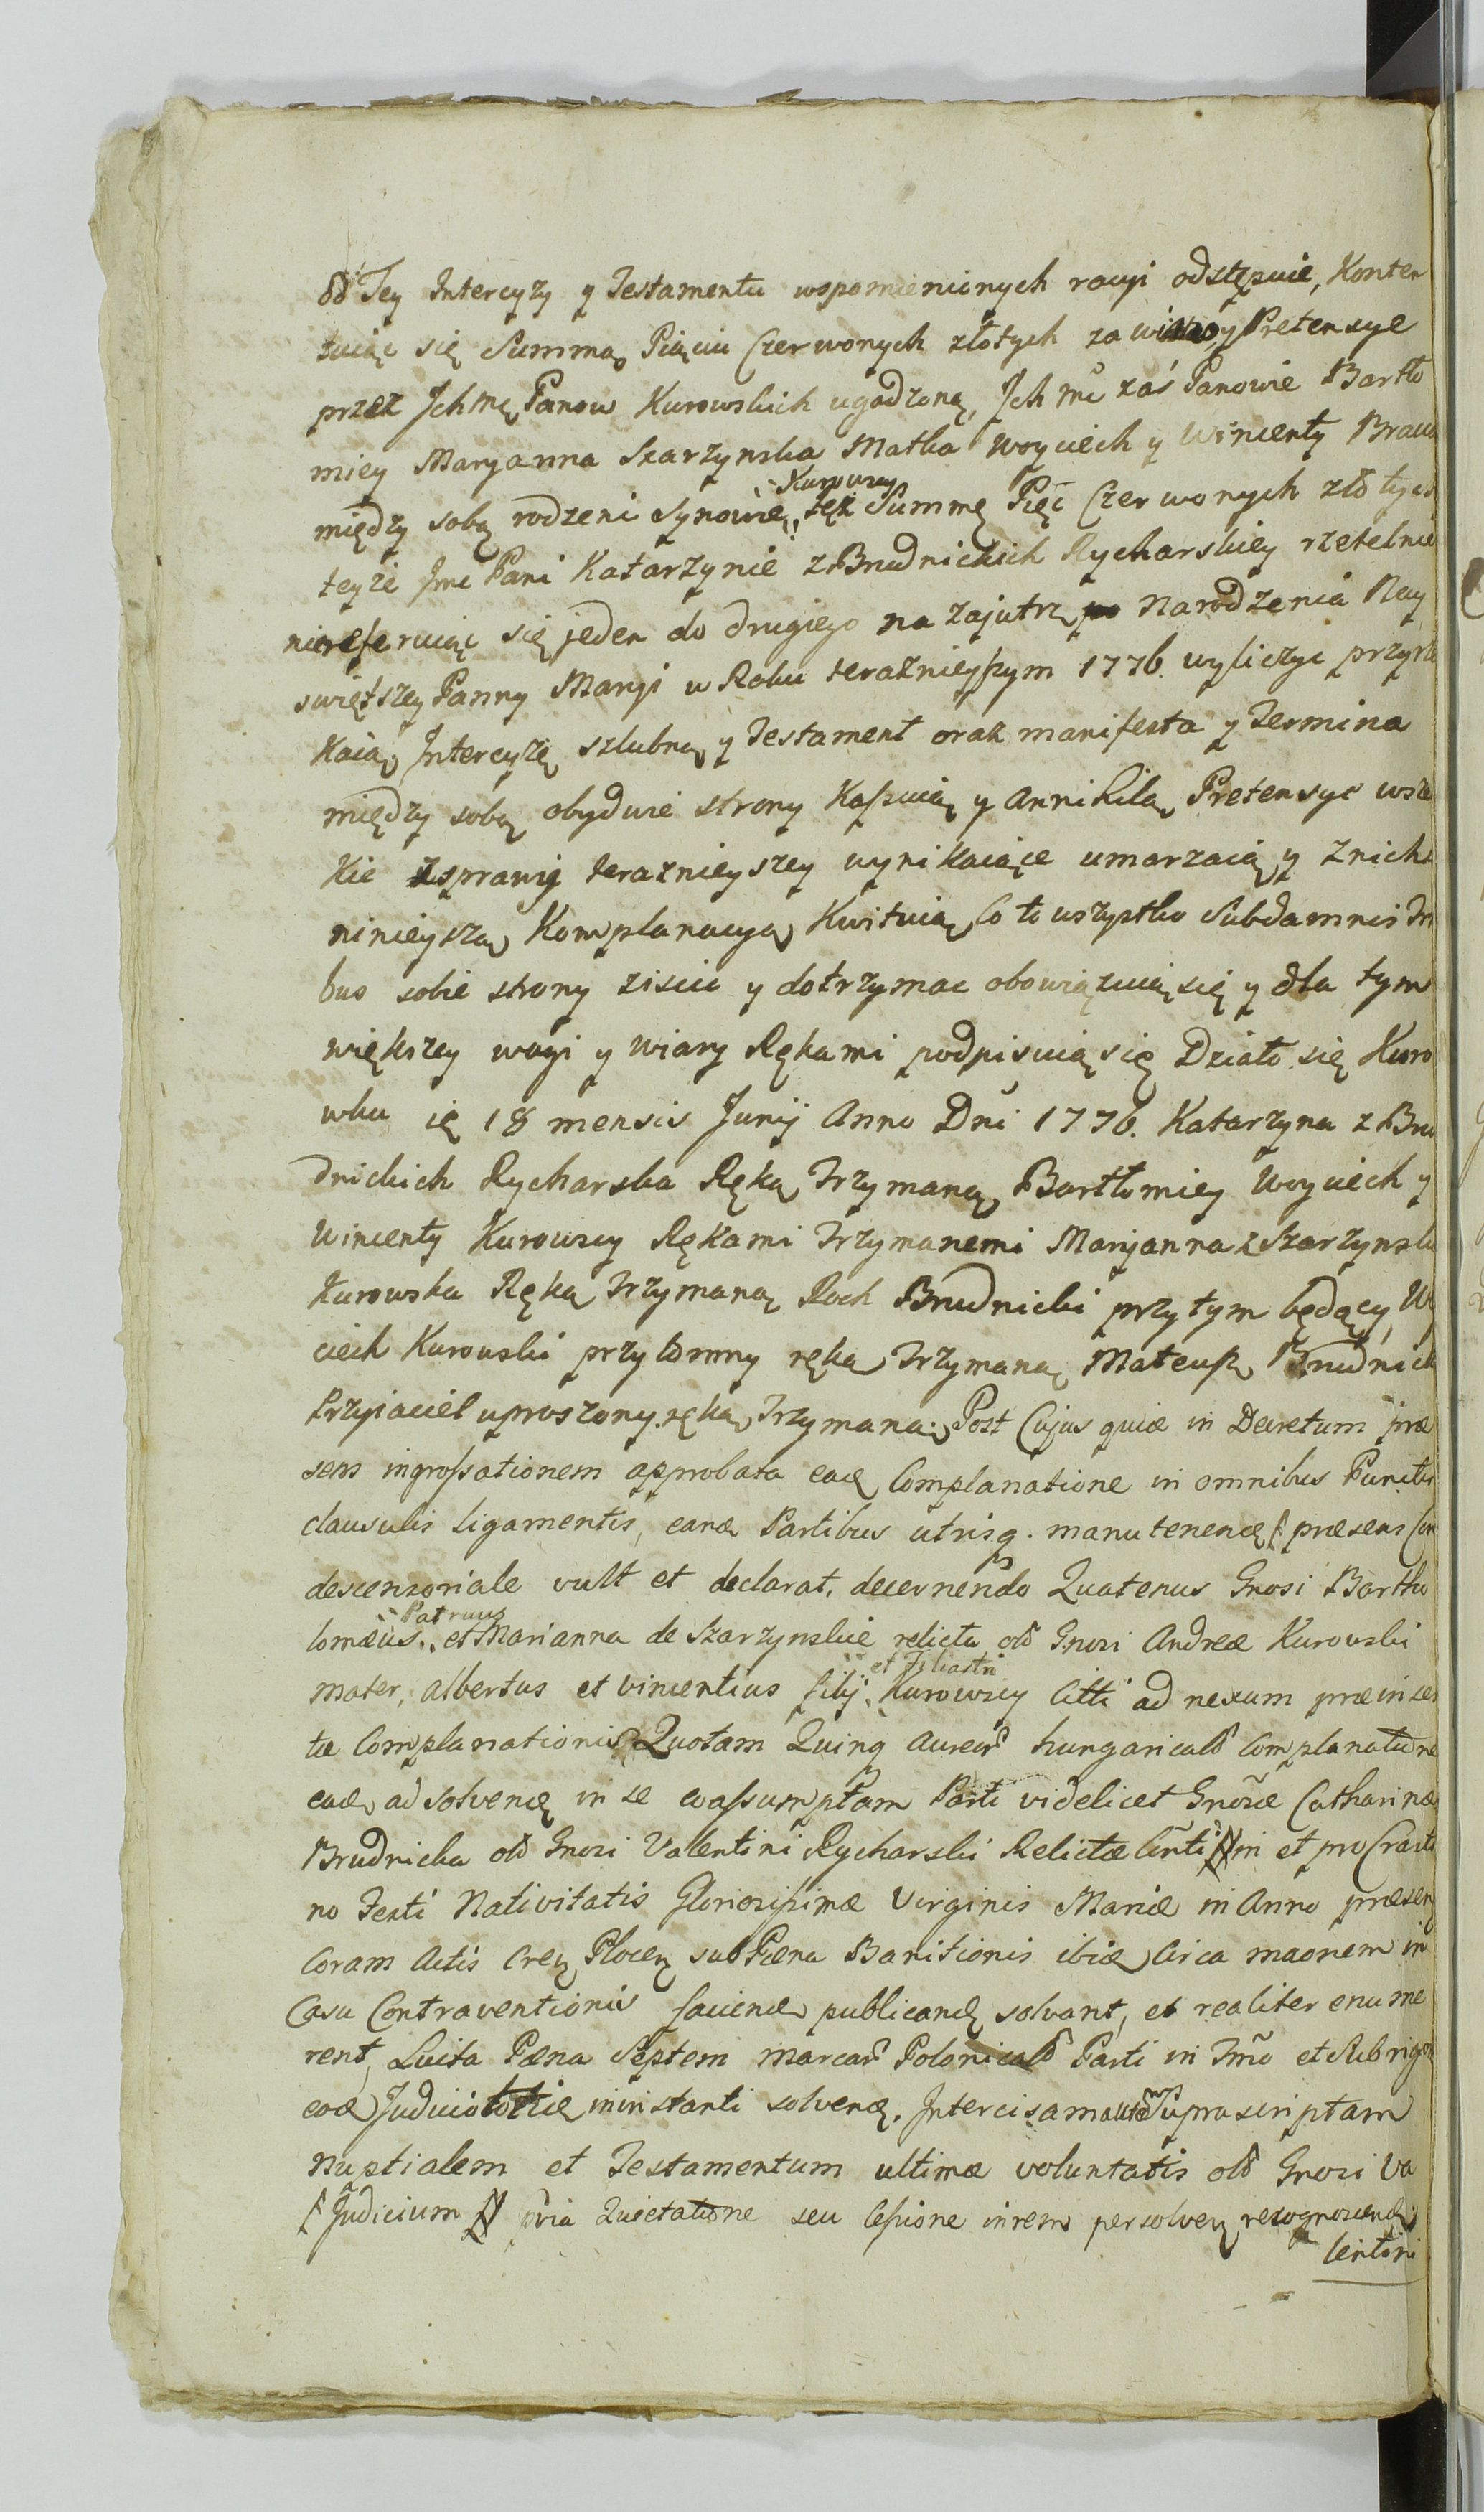 od Tey Intercyzy y Testamentu wspomnienionych racyi odstępuie, Konten
tuiąc się Summą Pięciu Czerwonych złotych za Pretensye
przez Ichmę Panow Kurowskich ugodzoną, Ich mć zaś Panowie Bartło
miey Maryanna Szarzynska Matka Woyciech y Wincenty Bracia
Kurowscy
między sobą rodzeni Synowie, tęż Summę Pięć Czerwonych złotych
teyże Jmc Pani Katarzynie z Brudnickich Rycharskiey rzetelnie
niereferuiąc się jeden do drugiego na zajutrz Narodzenia Nay
swiętszey Panny Maryi w Roku teraznieyszym 1776 wyliczyc przyrze
kaią, Intercyzę szlubną y Testament oraz manifesta y Termina
między sobą obydwie strony Kassuią y Annihilą Pretensye wszel
kie zsprawy teraznieyszey wynikaiące umarzaią y Znich
ninieyszą Komplanacyą Kwituią, Co to wszystko Sub damnis
bus sobie strony ziscic y dotrzymac obowięzuią się y dla tym
większey wagi y wiary Rękami podpisuią się Działo się Kuro
wku 18 mensis Junij Anno Dni 1776. Katarzyna z Bru
dnickich Rycharska Ręką Trzymaną Bartłomiey Woyciech y
Wincenty Kurowscy Rękami Trzymanemi Maryanna z Szarzynsk
Kurowska Ręką Trzymaną Roch Brudnicki przytym będący, W
ciech Kurowski przytomny ręką Trzymaną Mateusz Brudnick
Przyiaciel uproszony ręką Trzymaną. Post Cujus quidē in Decretum præ
sens ingrossationem approbata eadē Complanatione in omnibus Punctis
clausulis ligamentis, eandē Partibus utrisq. manutenendē præsens Con
descensoriale vult et declarat. decernendo Quatenus Gnosi Bartho
Patruus
lomæus et Marianna de Szarzynskie relicta old Gnosi Andreæ Kurowski
et Filiastri
mater, Albertus et Vincentius filij Kurowscy Citti ad nexum præinser
tæ Complanationis Quotam Quinq Aureor hungarical Complanatione
eadē ad solvendē in se coassumptam Parti videlicet Gnosæ Catharinæ
Brudnicka old Gnosi Valentini Rycharski Relictæ in et pro Crasti
no Festi Nativitatis Gloriosissimæ Virginis Mariæ in Anno præsen
coram Actis Plocen sub Pœna Banitionis ibidē Circa in
Casu Contraventionis faciendē publicandē solvant, et realiter enume
rent, Luita Pœna Septem marcar Polonical Parti in Tmo et Sub rigor
eodē Judicio in instanti solvendē. Intercisam autē supra scriptam
nuptialem et Testamentum ultimæ voluntatis old Gnosi Va
Judicium pvia Quietatione seu Cessione in rem persolven recognoscendē
lentini